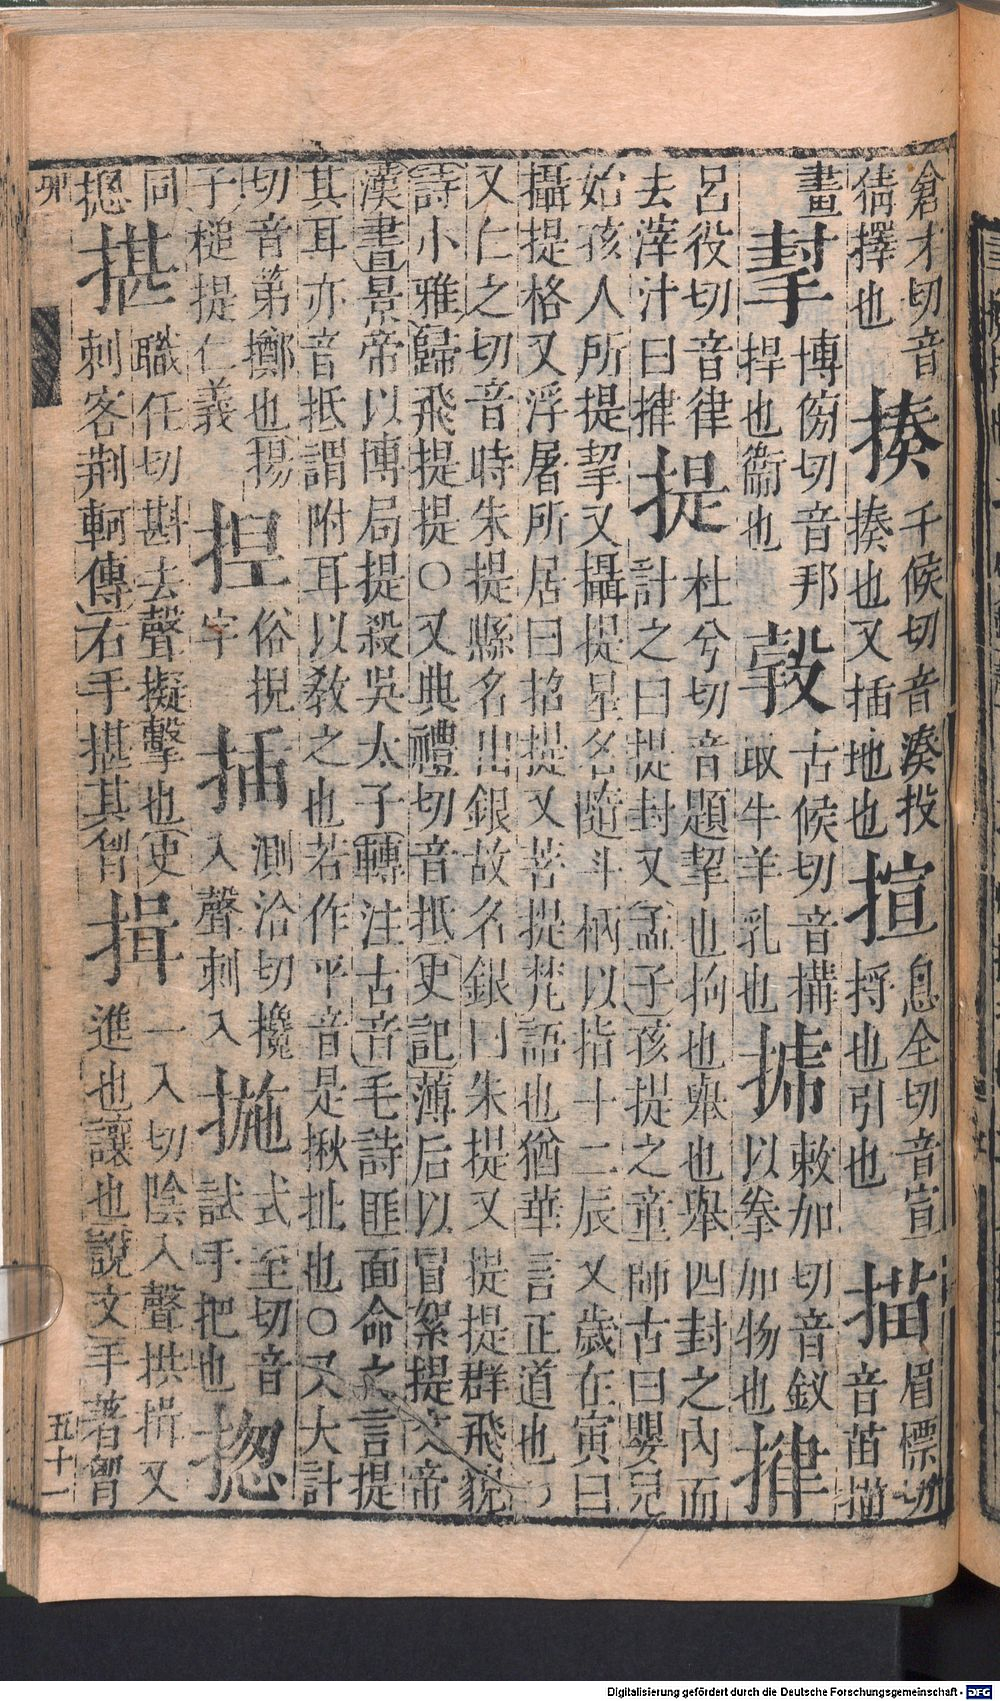 倉才切音
猜擇也
揍
千候切音湊投
揍也又插地也
揎
息全切音宣
捋也引也
描
眉慓切
音苗描
畫
博傍切音邦
捍也衞也
古候切音搆
取牛羊乳也
敕加切音釵
以拳加物也
呂役切音律
去滓汁曰
提
杜兮切音題挈也抅也舉也舉四封之內而
計之曰提封又孟子孩提之童師古曰嬰兒
始孩人所提挈又攝提星名隨斗柄以指十二辰又歲在寅曰
攝提格又浮屠所居曰招提又菩提梵語也猶華言正道也
又仁之切音時朱提縣名出銀故名銀曰朱提又提提群飛貌
詩小雅歸飛提提○又典禮切音抵史記薄后以冒絮提文帝
漢書景帝以博局提殺吳太子轉注古音毛詩匪面命之言提
其耳亦音抵謂附耳以敎之也若作平音是揪扯也○又大計
切音弟擲也揚
子槌提仁義
揑
俗捏
字
插
測洽切攙
入聲刺入
揓
式至切音
試手把也
揔
同
摠
揕
職任切斟去聲擬擊也史
刺客荊軻傳右手揕其胷
揖
一入切陰入聲拱揖又
進也讓也說文手著胷
卯
五十一
Digitalisierung gefördert durch die Deutsche Forschungsgemeinschaft - DFG